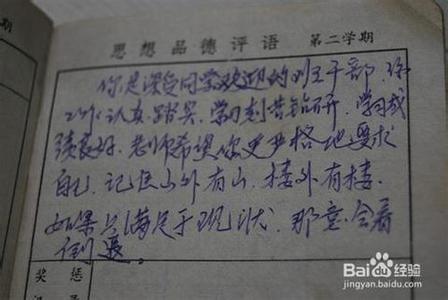 思想品德评语 第二学期
你是深受同学欢迎的班干部,你
工作认真踏实,学习刻苦钻研,学习成
绩良好。老师希望你更严格地要求
自己,记住山外有山,楼外有楼。
如果只满足于现状,那意会着
倒退。
奖惩
Baidu 经验
jingyan.baidu.com